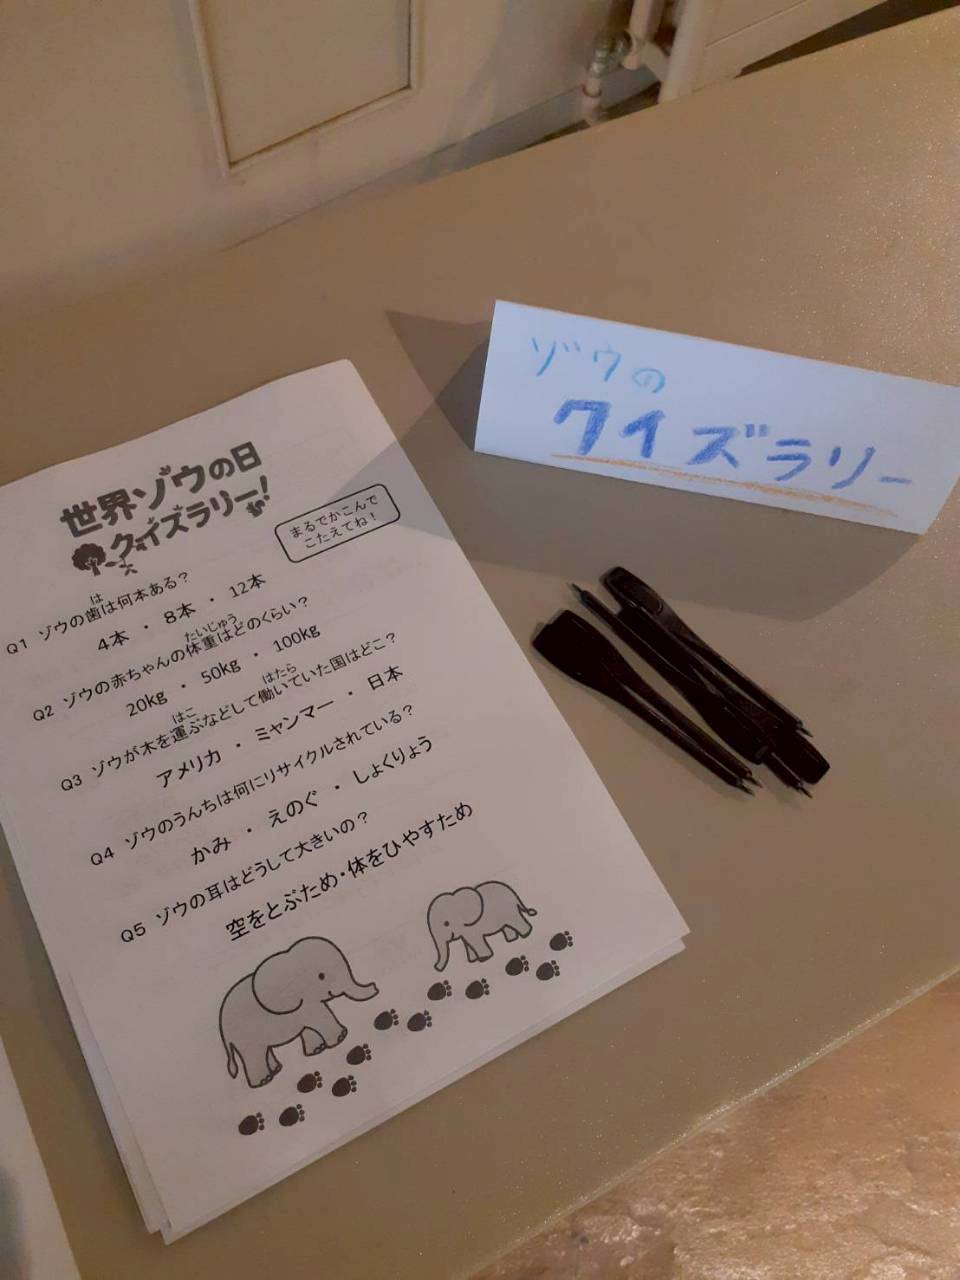 世界ゾウの日
クイズラリー!
まるでかこんで
こたえてね!
は
Q1 ゾウの歯は何本ある?
4本 ・ 8本 ・ 12本
たいじゅう
Q2 ゾウの赤ちゃんの体重はどのくらい?
20kg ・ 50kg ・ 100kg
はこ はたら
Q3 ゾウが木を運ぶなどして働いていた国はどこ?
アメリカ ・ ミャンマー ・ 日本
Q4 ゾウのうんちは何にリサイクルされている?
かみ ・ えのぐ ・ しょくりょう
Q5 ゾウの耳はどうして大きいの?
空をとぶため・体をひやすため
ゾウの
クイズラリー